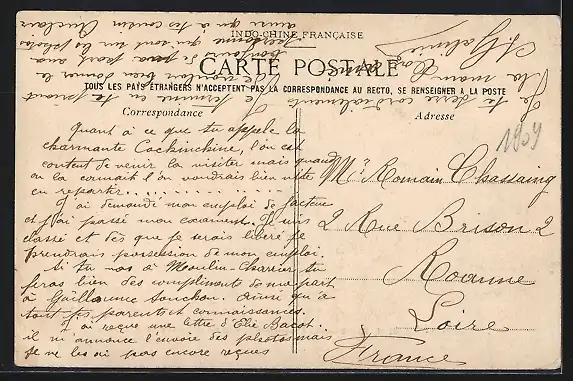 INDO-CHINE FRANÇAISE
CARTE POSTALE
TOUS LES PAYS ÉTRANGERS N'ACCEPTENT PAS LA CORRESPONDANCE AU RECTO, SE RENSEIGNER A LA POSTE
Correspondance
Quant à ce que tu appele la
charmante Cochinchine, l'on est
content de venir la visiter mais quand
on la connait l'on voudrais bien vite
en repartir.
J'ai demandé mon emploi de facteur
et j'ai passé mon exament. Je suis
classé et dès que je serais libéré je
prendrais possession de mon emploi.
Si tu vas à Moulin-Charrier tu
feras bien des compliments de ma part
à Guillaume Souchon. ainsi qu'a
tout ses parents et connaissances.
J'ai reçue une lettre d'Elie Bacot.
il m'annonce l'envoie des photos mais
je ne les ai pas encore reçues
Je termine en te priant
de vouloir bien donner le
bonjours de ma part aux
personne qui sont sur les photos
ainsi qu'à tes cousin
Je te serre cordialement
la main
Adresse
1909
Mr Romain Chassaing
2 Rue Brison 2
Roanne
Loire
France